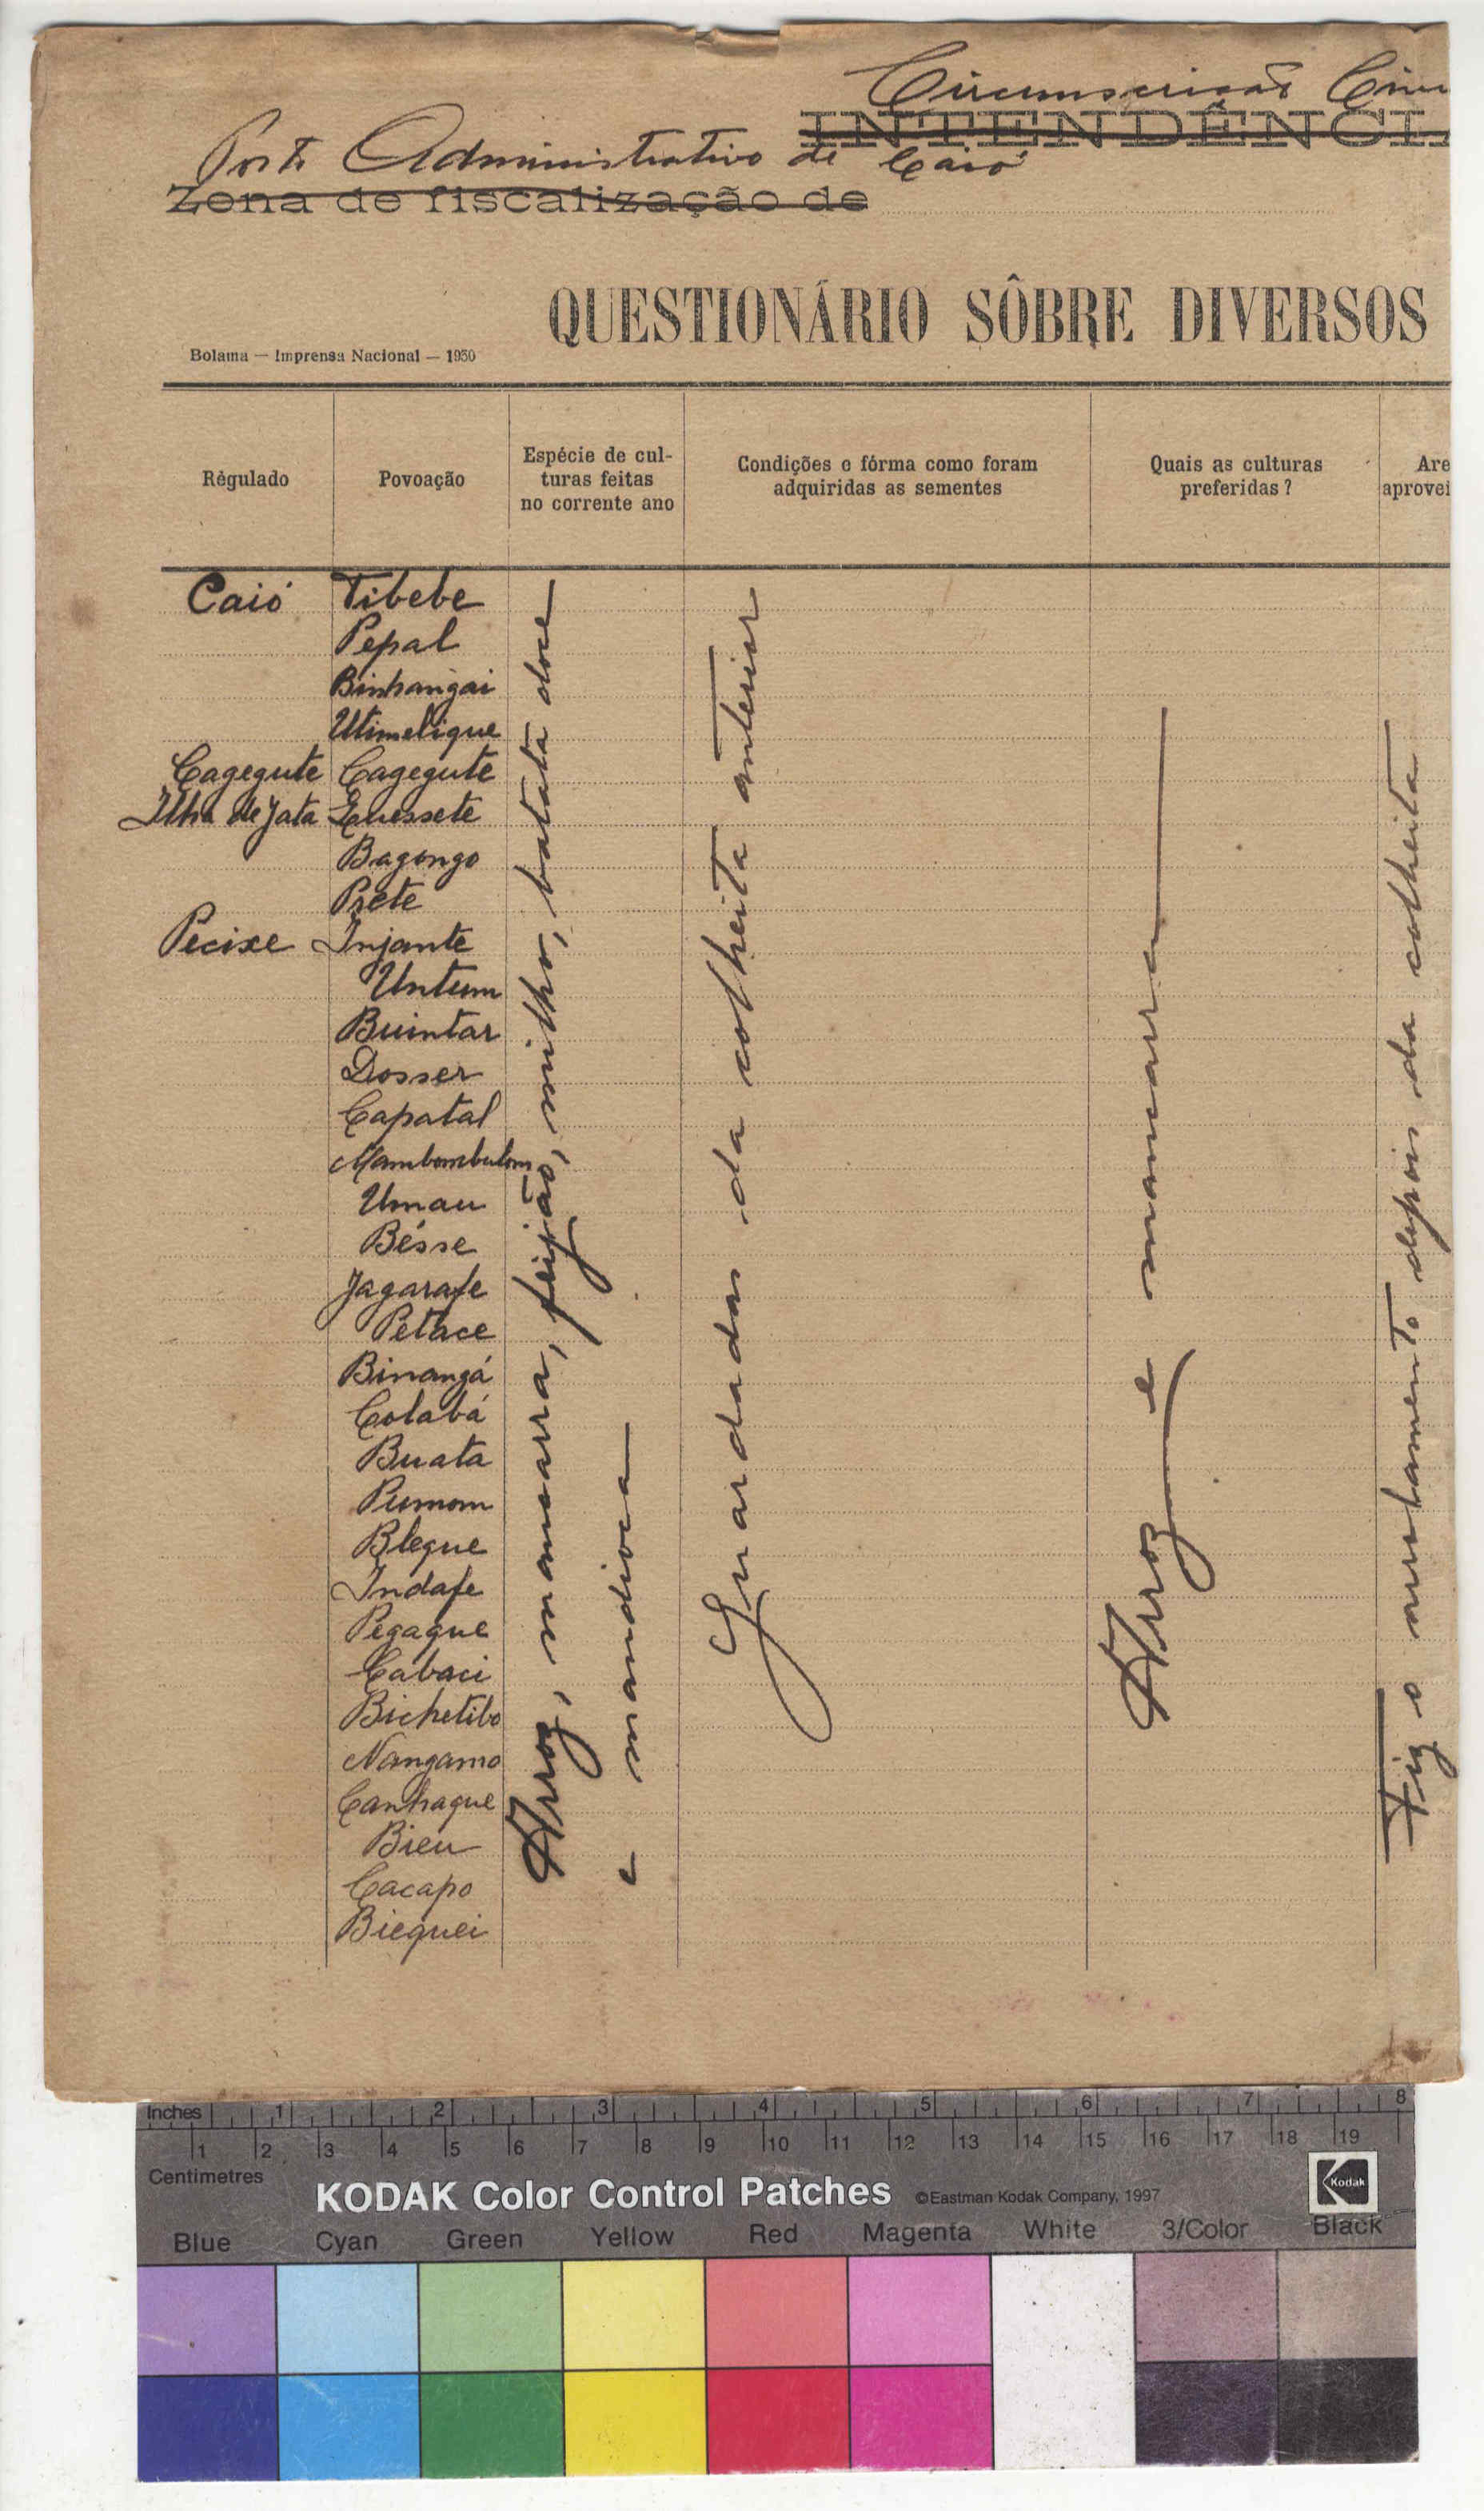 Circunscrição Civi
INTENDÊNCI
Posto Administrativo de Caió
Zona de fiscalização de
QUESTIONÁRIO SÔBRE DIVERSOS
Bolama — Imprensa Nacional — 1930
Régulado
Povoação
Espécie de cul-
turas feitas
no corrente ano
Condições e fórma como foram
adquiridas as sementes
Quais as culturas
preferidas?
Are
aprovei
Caió Tibebe
Pepal
Binhangai
Utimeligue
Cagegute Cagegute
Ilha de Jata Quessete
Bagongo
Prete
Pecixe Injante
Untum
Buintar
Dosser
Capatal
Mambombulom
Umau
Bésse
Jagarafe
Petace
Binangá
Colabá
Buata
Pumom
Blegue
Indafe
Pegague
Cabaci
Bichetibo
Nangamo
Canhaque
Bieu
Cacapo
Biequei
Arroz, mancarra, feijão, milho, batata doce
e mandioca
Guardadas da colheita anterior
Arroz e mancarra
Fiz o arrolamento depois da colheita
Inches 1 2 3 4 5 6 7 8
1 2 3 4 5 6 7 8 9 10 11 12 13 14 15 16 17 18 19
Centimetres
KODAK Color Control Patches ©Eastman Kodak Company, 1997 Kodak
Blue Cyan Green Yellow Red Magenta White 3/Color Black